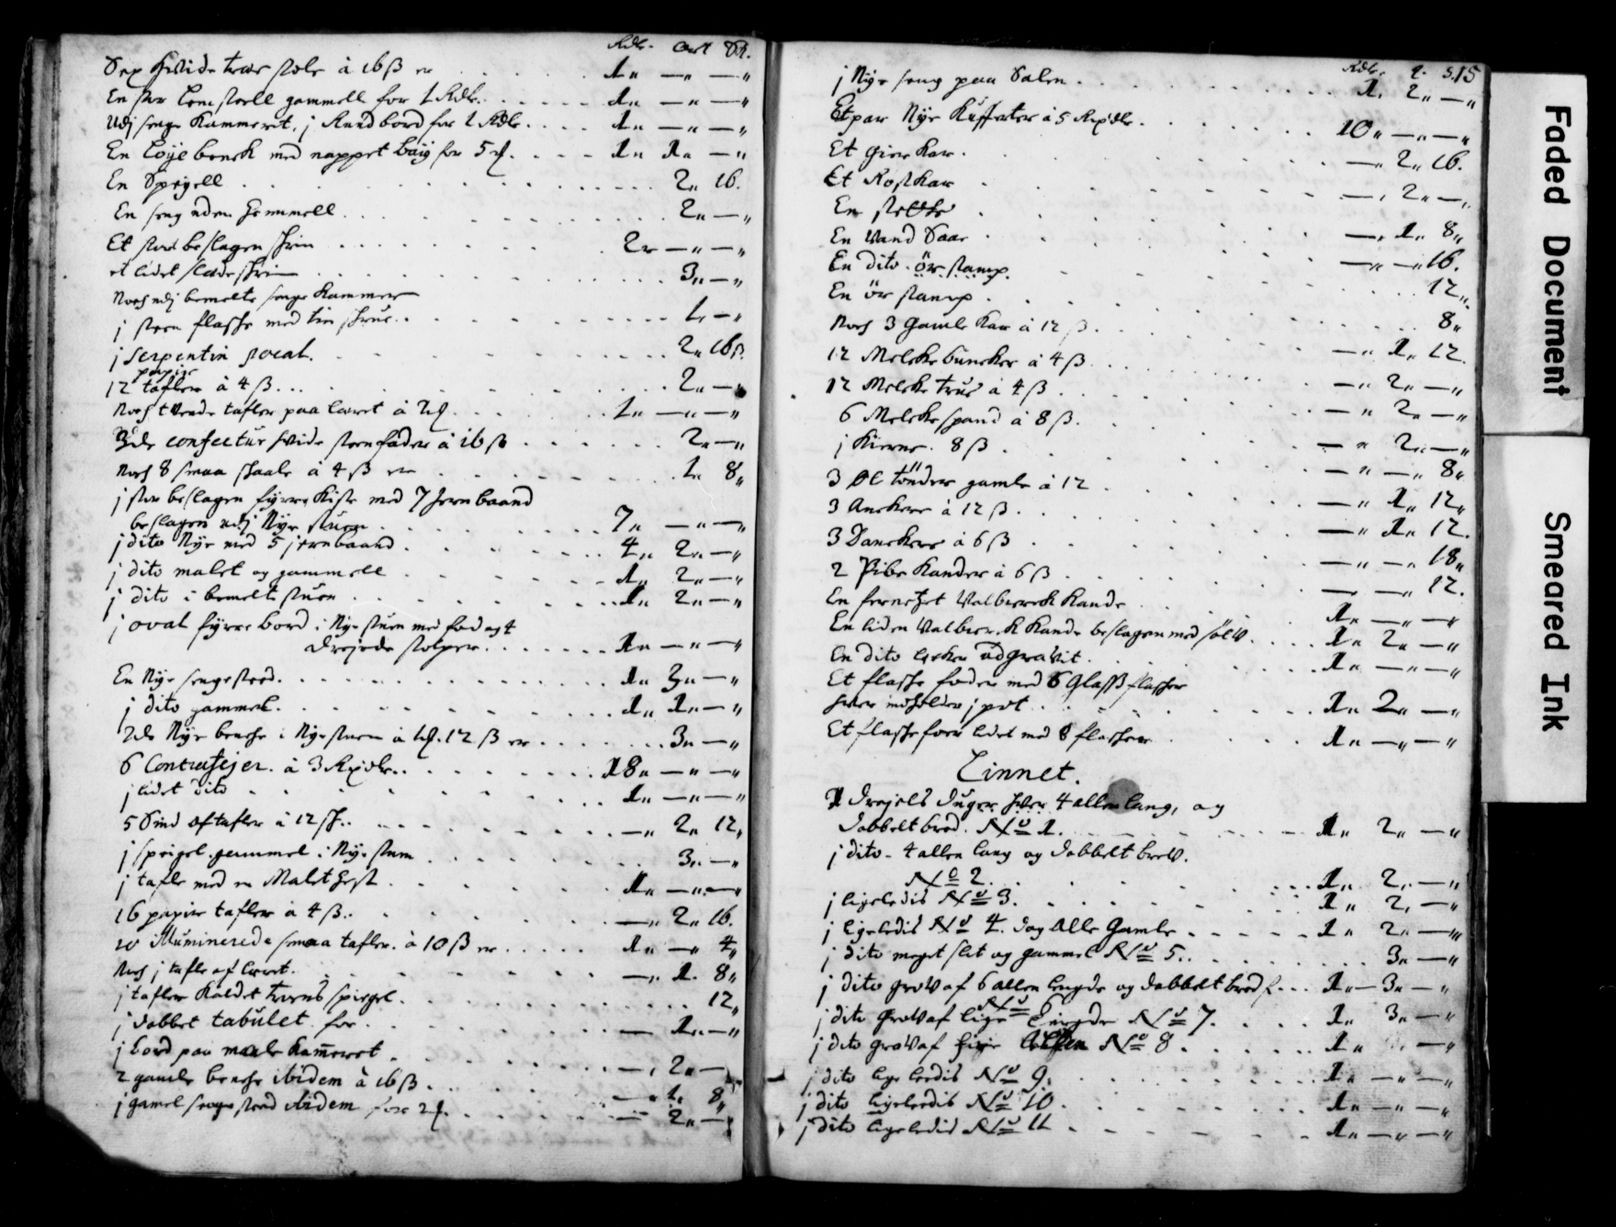 Rdlr. Ort ß.
Sex hvide træe stole à 16 ß er . . . 1„ —„ —„
En stor Lænestoell gammell for 1 Rdlr. . . . 1„ —„ —„
Udj senge Kammeret, j Rundbord for 1 Rdlr . . . 1„ —„ —„
En Løye bench med nappet baÿ for 5 . . . 1„ 1„ —„
En Speyell . . . 2„ 16.
En seng uden Himmell . . . 2„ —„
Et stort beslagen skrin . . . 2„ —„ —„
et lidet slædeskrin . . . 3„ —„
Noch udj bemelte senge Kammer
j steen flaske med tin skrue . . . 1„ —„
j Serpentin pocal. . . . 2„ 16 ß.
papir
12 tafler à 4 ß . . . 2„ —„
Noch tvende tafler paa lærret à 2 . . . 1„ —„ —„
confectur hvide steenfader à 16 ß . . . 2„ —„
Noch 8 smaa skaale à 4 ß er . . . 1„ 8„
j stor beslagen fyrre Kiste med 7 Jernbaand
beslagen udj Nye stuen . . . 7„ —„ —„
j dito Nye med 5 jernbaand . . . 4„ 2„ —„
j dito malet og gammell . . . 1„ 2„ —„
j dito i bemelte stuen . . . 1„ 2„ —„
j oval fyrre bord i Nye stuen med fod og 4
drejede stolper . . . 1„ —„ —„
En Nye sengested . . . 1„ 3„ —„
j dito gammel . . . 1„ 1„ —„
2de Nye benche i Nye stuen à 1. 12 ß er . . . 3„ —„
6 Contrafejer. à 3 Rixdlr. . . . 18„ —„ —„
j lidet dito . . . 1„ —„ —„
5 Smd Aftafler à 12 sk. . . . —„ 2„ 12„
j speigel gammel i Nye stuen . . . 3„ —„
j tafle med en Malet Hest . . . 1„ —„ —„
16 papier tafler à 4 ß. . . . —„ 2„ 16.
20 illuminerede smaa tafler. à 10 ß er . . . 1„ —„ 4„
Noch j tafle af lærret. . . . —„ 1. 8„
j tafler Kaldet tverns spiegel. . . . 12„
j dobbet tabulet for . . . — 1„ —„
j bord paa maale Kammeret . . . —„ 2„ —
2 gamle benche ibidem à 16 ß. . . . —„ 1„ 8„
j gamel sengested ibidem for 2 . . . — 2„ —„
Rdlr. 2. s. 15
j Nye seng paa Salen . . . 1. 2„ —„
Et par Nye Kufferter à 5 Rixdlr. . . . 10„ —„ —„
Et giær Kar. . . . —„ 2„ 16.
Et Rost kar . . . —„ 2„ —„
En
En Vand Saae . . . —„ 1„ 8„
En dito ör stamp. . . . —„ —„ 16.
En ör stamp . . . 12„
Noch 3 gamle Kar à 12 ß . . . 8„
12 Melcke bunker à 4 ß . . . —„ 1„ 12.
12 Melcke trus à 4 ß . . . —„ 2„ —„
6 Melckespand à 8 ß. . . . —„ 2„ —„
j Kierne. 8 ß . . . —„ 2„ —„
3 Øl tönder gamle à 12 . . . —„ —„ 8„
3 Anckere à 12 ß . . . —„ 1„ 12„
3 Danckere à 6 ß . . . —„ 1„ 12.
2 Pibe Kander à 6 ß . . . —„ —„ 18„
En ferneßet Valbirck Kande . . . —„ —„ 12.
En liden Valbirck Kande beslagen med sölv . . . 1„ —„ —„
En dito udgravet . . . 1„ 2„ —„
Et flaske foder med 6 Glasß flasker . . . 1„ —„ —„
hver indholder j pot . . . 1„ 2„ —„
Et flaskefoer lidet med 8 flasker . . . 1„ —„ —„
Linnet.
1 drejels Duger hver 4 allen lang, og
dobbelt bred. No 1. . . . 1„ 2„ —„
j dito. 4 allen lang og dobbelt bred.
No 2. . . . 1„ 2„ —„
j ligeledis No 3. . . . 1„ 2„ —„
j ligeledis No 4. dog Alle Gamle . . . 1„ 2„ —„
j dito meget slet og gammel No 5. . . . 3„ —„
j dito grov af 6 allen lengde og dobbelt bred . . . 1„ — 3„ —„
No 6
j dito Grov af lige Lengde No 7. . . . 1„ 3„ —„
j dito grov af No 8 . . . 1„ —„
j dito ligeledis No 9. . . . 1„ —„ —„
j dito ligeledis No 10 . . . 1„ —„ —„
j dito ligeledis No 11 . . . 1„ —„ —„
Faded Document
Smeared Ink